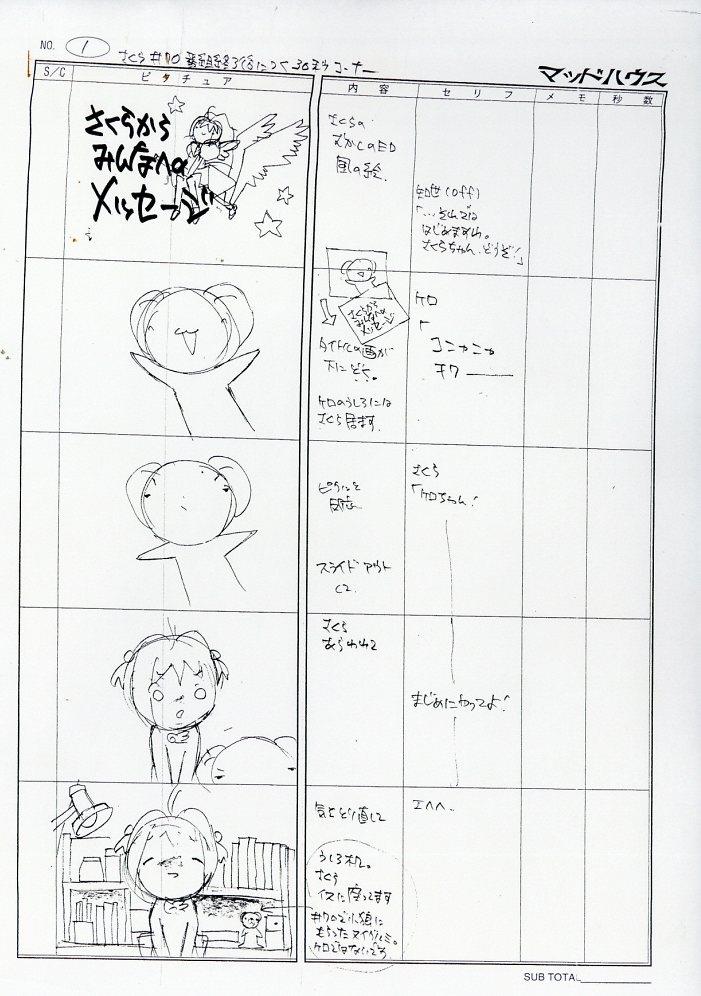 NO. 1
さくら#70 番組終了後につく30秒コーナー
マッドハウス
S/C
ピクチュア
内容
セリフ
メモ
秒数
さくらから
みんなへの
メッセージ
さくらの
むかしのED
風の絵.
知世(off)
「…それでは
はじめますわ。
さくらちゃん、どうぞ!」
さくらから
みんなへの
メッセージ
タイトルの画が
下にどく。
ケロのうしろには
さくら居ます.
ケロ
「
コニャニャ
チワ――
反応
スライドアウト
さくら
「ケロちゃん!
さくら
あらわれて
まじめにやってよ!
気をとり直して
エヘヘ.
うしろ机。
さくら
イスに座ってます
#70で小狼に
もらったヌイグルミ。
ケロではないです
SUB TOTAL